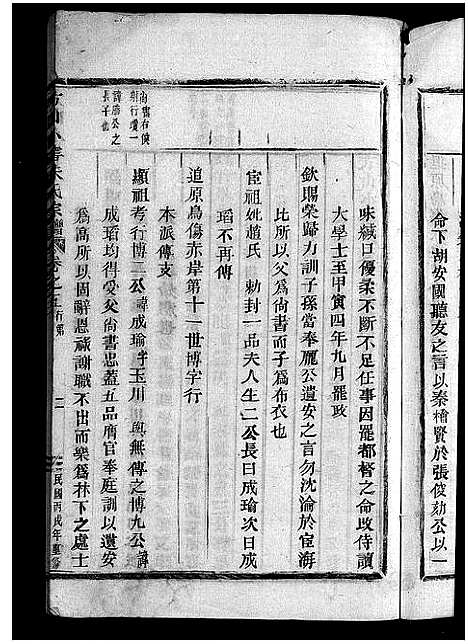 命下胡安國聽友之言以秦檜賢於張俊劾公以一
味緘口優柔不斷不足任事因罷都督之命改侍讀
大學士至甲寅四年九月罷政
欽賜榮歸力訓子孫當奉龐公遺安之言勿沈淪於宦海
比所以父爲尙書而子爲布衣也
宦祖妣趙氏 勅封一品夫人生二公長曰成瑜次曰成
瑫不再傳
追原烏傷赤岸第十一世博字行
本派傳支
尙書右僕
射行瓊一
諱勝公之
長子也
顯祖考行博二公諱成瑜字玉川與無傳之博九公諱
成瑫均得受父尙書忠蓋五品廕官奉庭訓以遺安
爲高所以固辭恩祿謝職不出而樂爲林下之處士
朱氏宗譜 卷之五 行第 二 民國丙戌年重修